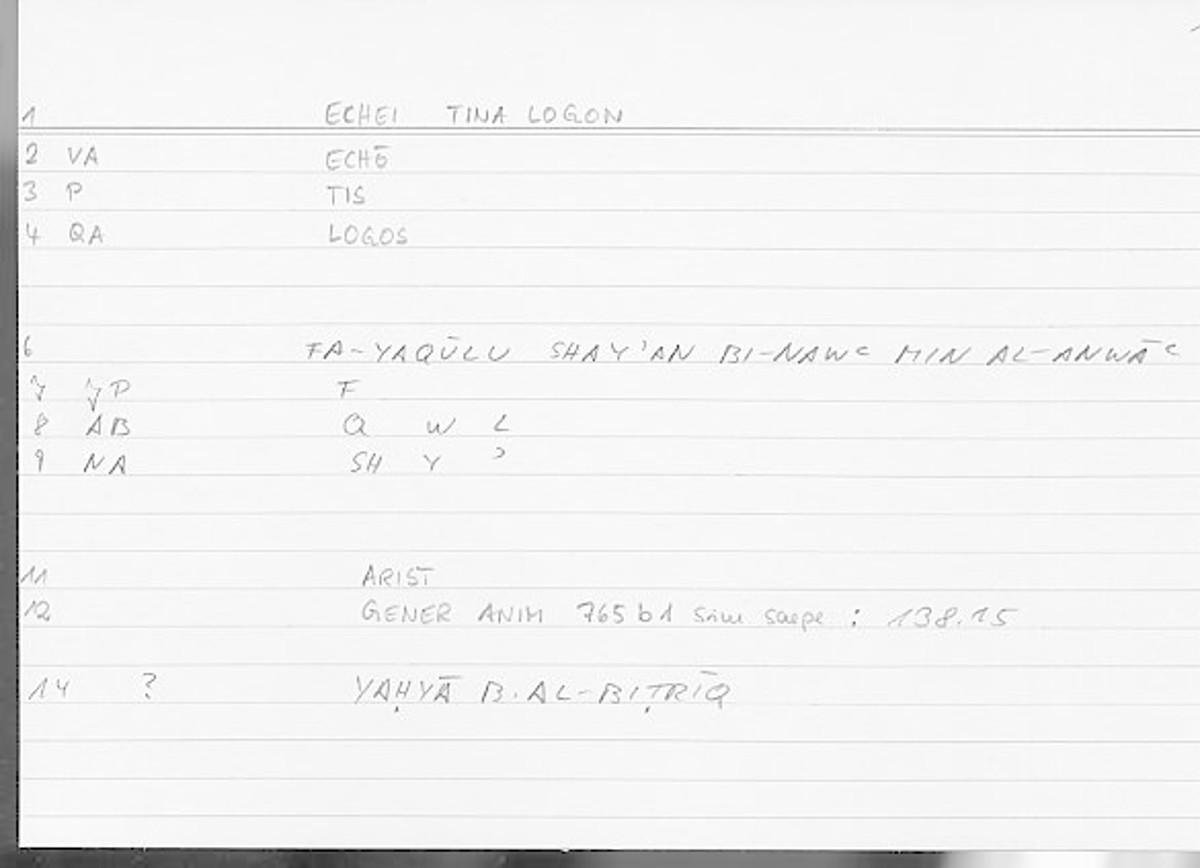 1 ECHEI TINA LOGON
2 VA ECHŌ
3 P TIS
4 QA LOGOS
6 FA-YAQŪLU SHAY'AN BI-NAWᶜ MIN AL-ANWĀᶜ
7 JP F
8 AB Q W L
9 NA SH Y ʾ
11 ARIST
12 GENER ANIM 765 b 1 sim saepe : 138.15
14 ? YAḤYĀ B. AL-BIṬRĪQ